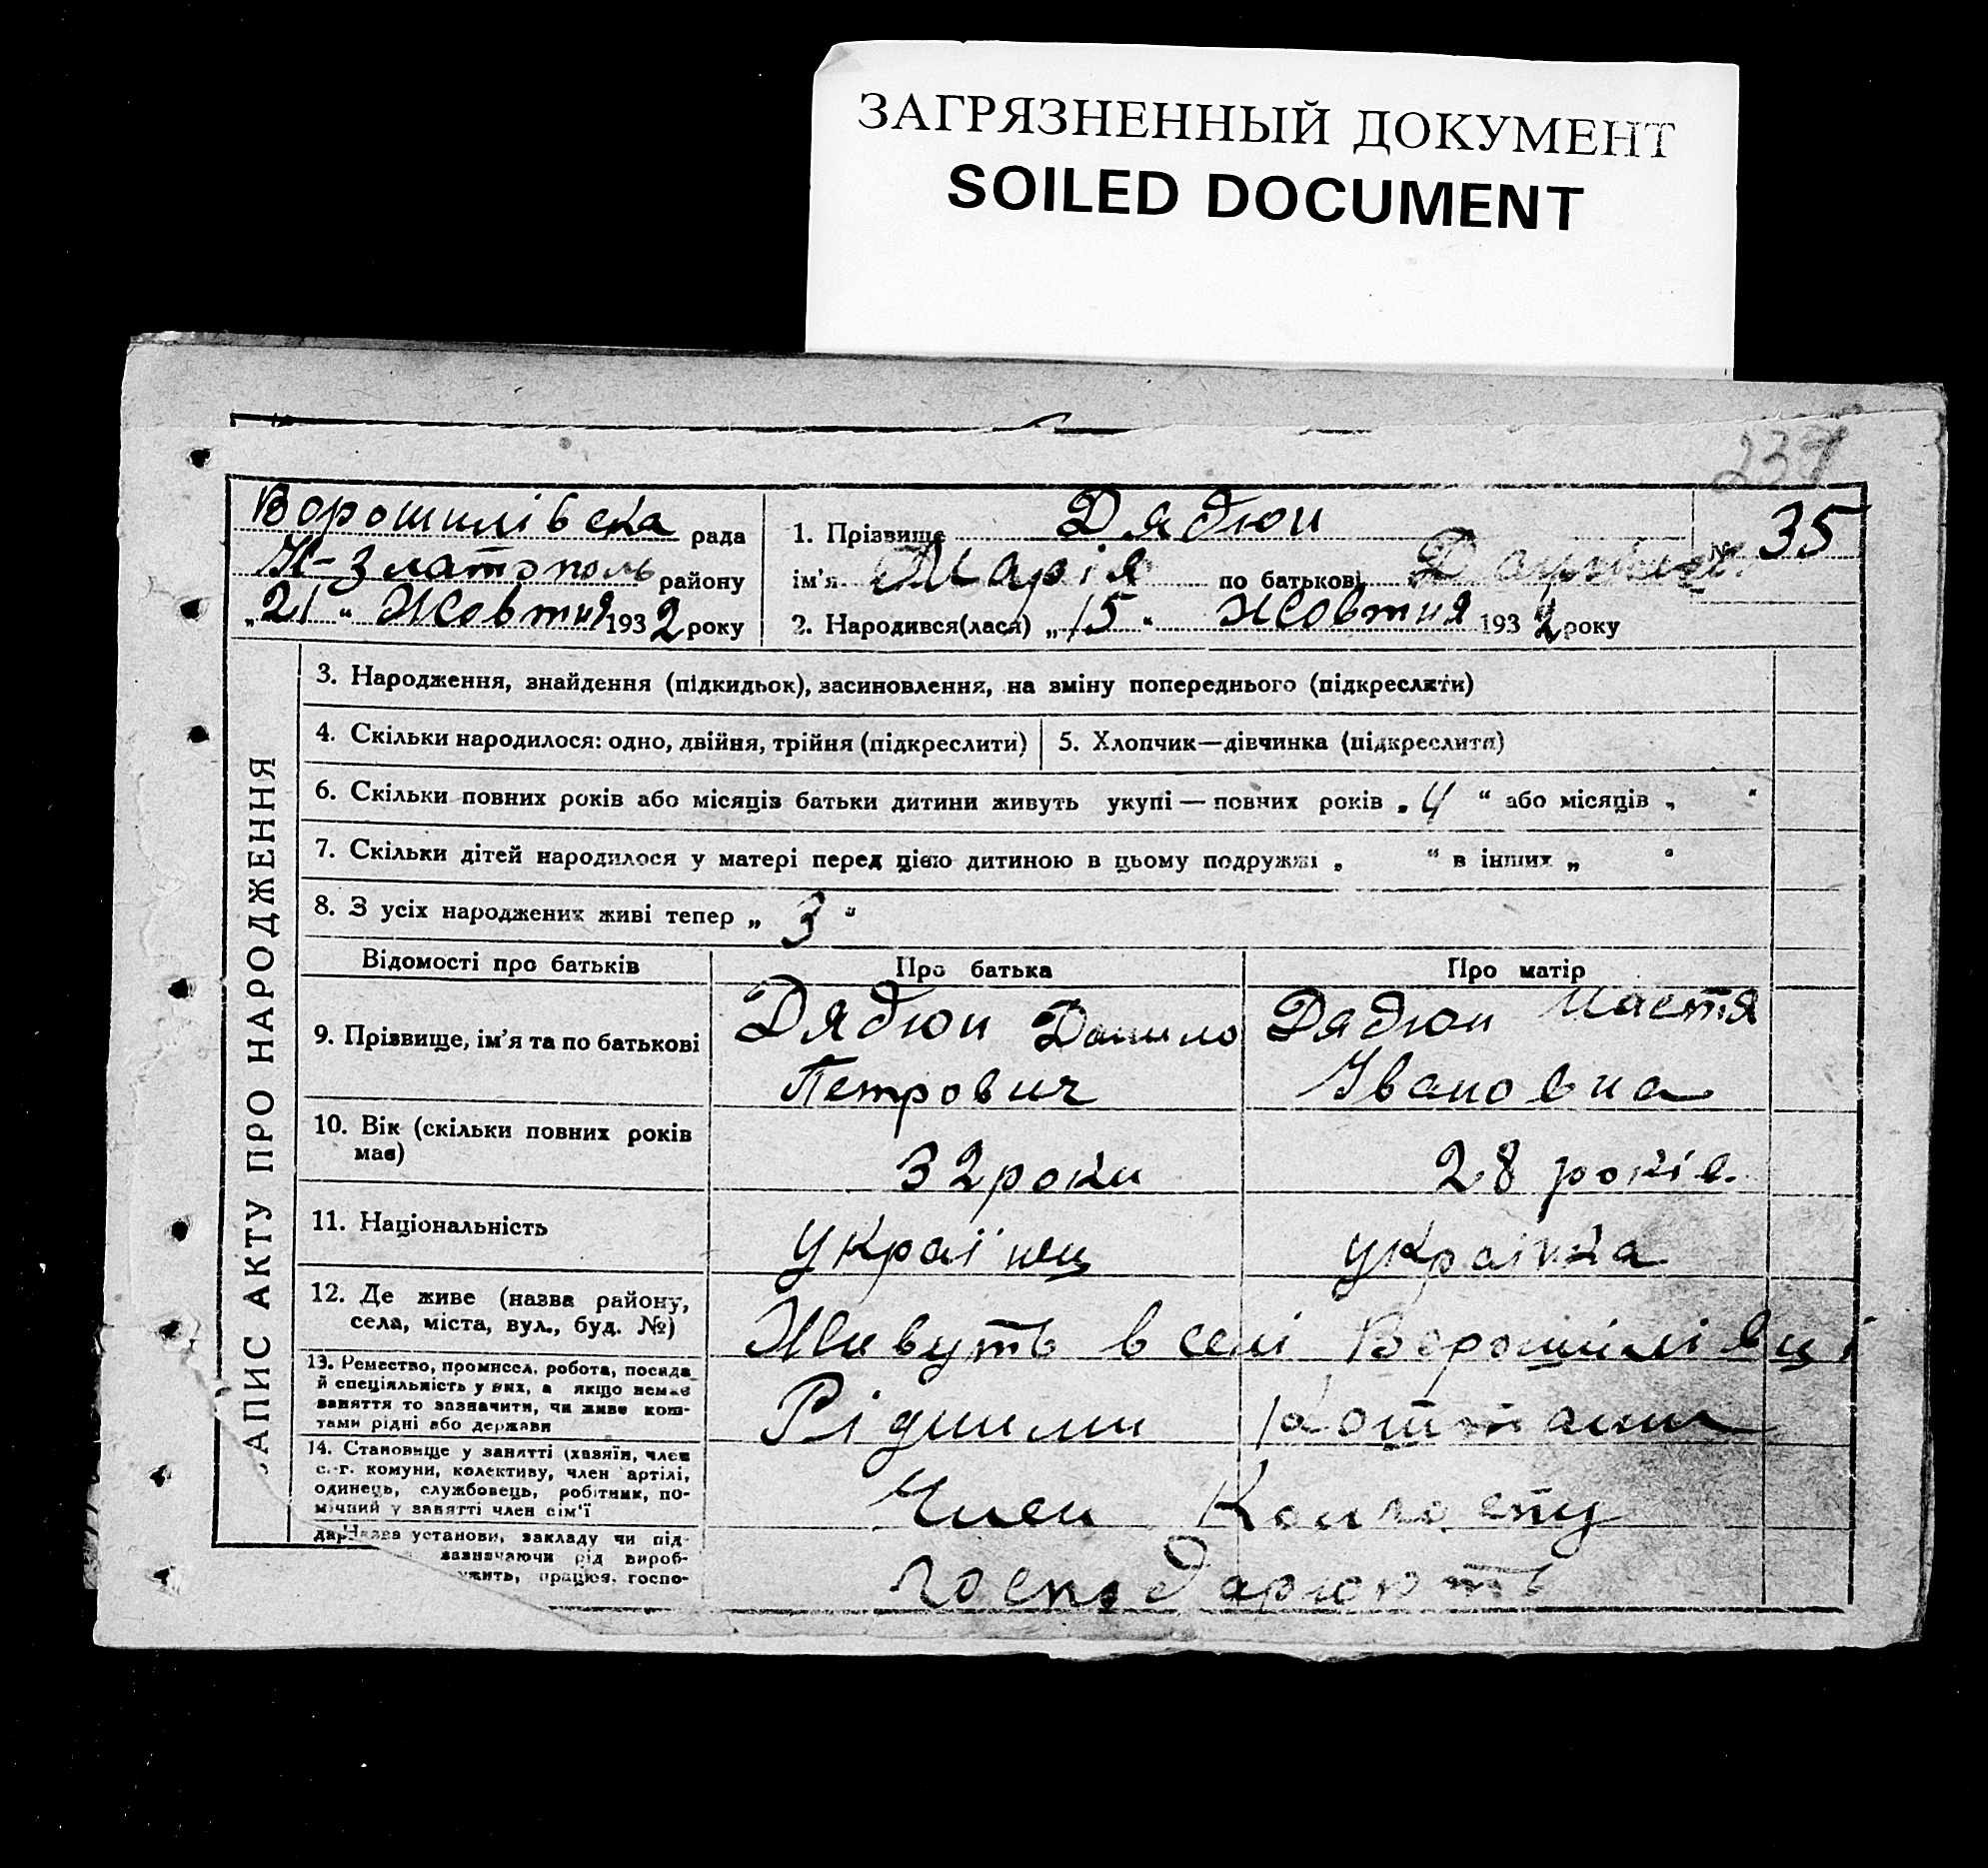 ЗАГРЯЗНЕННЫЙ ДОКУМЕНТ
SOILED DOCUMENT
237
Ворошилівска рада
Н-Златополь району
„21" Жовтня 1932 року
1. Прізвище Дядюн
35
ім'я Марія по батькові
2. Народився(лася) „15" Жовтня 1932 року
ЗАПИС АКТУ ПРО НАРОДЖЕННЯ
3. Народження, знайдення (підкидьок), засиновлення, на зміну попереднього (підкреслити)
4. Скільки народилося: одно, двійня, трійня (підкреслити)
5. Хлопчик—дівчинка (підкреслити)
6. Скільки повних років або місяців батьки дитини живуть укупі — повних років „4" або місяців „ "
7. Скільки дітей народилося у матері перед цією дитиною в цьому подружжі „ " в інших „ "
8. З усіх народжених живі тепер „3"
Відомості про батьків
Про батька
Про матір
9. Прізвище, ім'я та по батькові
Дядюн Данило
Петрович
Дядюн Настя
Івановна
10. Вік (скільки повних років
має)
32 роки
28 років.
11. Національність
Украінец
украінка
12. Де живе (назва району,
села, міста, вул., буд. №)
Живуть в селі Ворошилівці
13. Ремество, промисел, робота, посада
й спеціяльність у них, а якщо немає
заняття то зазначити, чи живе кош-
тами рідні або держави
Рідними коштами
14. Становище у занятті (хазяїн, член
с.-г. комуни, колективу, член артілі,
одинець, службовець, робітник, по-
мічний у занятті член сім'ї
Член
Назва установи, закладу чи під-
зазначаючи рід вироб-
працює, госпо-
дар
господарюють